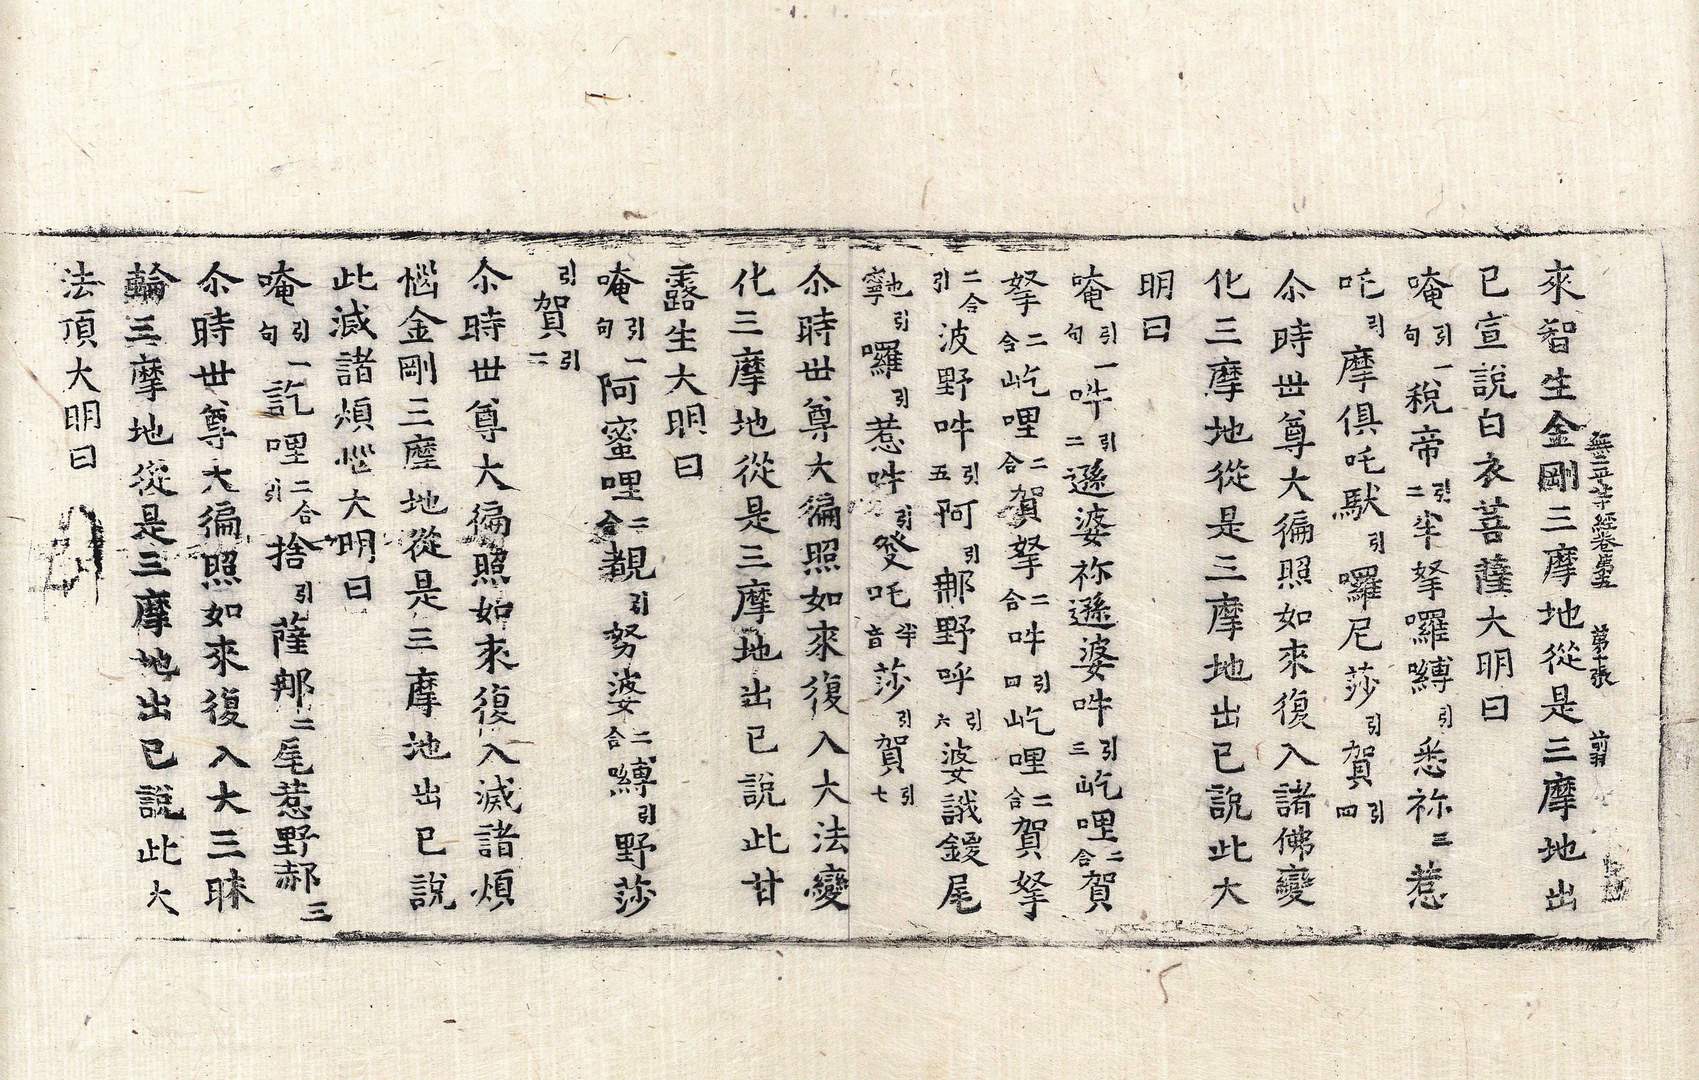 無二平等經卷第五 第十張 翦
來智生金剛三摩地從是三摩地出
已宣說白衣菩薩大明曰
唵引一句稅帝引二牢拏囉嚩引悉祢三惹
吒引摩俱吒馱引囉尼莎引賀引四
尒時世尊大徧照如來復入諸佛變
化三摩地從是三摩地出已說此大
明曰
唵引一句吽引二遜婆祢遜婆吽引三屹哩二合賀
拏二合屹哩二合賀拏二合吽引四屹哩二合賀拏
二合引波野吽引五阿引那野呼引六婆誐鑁尾
𭌯引囉引惹吽引發吒半音莎引賀引七
尒時世尊大徧照如來復入大法變
化三摩地從是三摩地出已說此甘
露生大明曰
唵引一句阿蜜哩二合覩引努婆二合嚩引野莎
引賀引二
尒時世尊大徧照如來復入滅諸煩
惱金剛三摩地從是三摩地出已說
此滅諸煩惱大明曰
唵引一句訖哩二合引捨引薩那二尾惹野郝三
尒時世尊大徧照如來復入大三昧
輪三摩地從是三摩地出已說此大
法頂大明曰